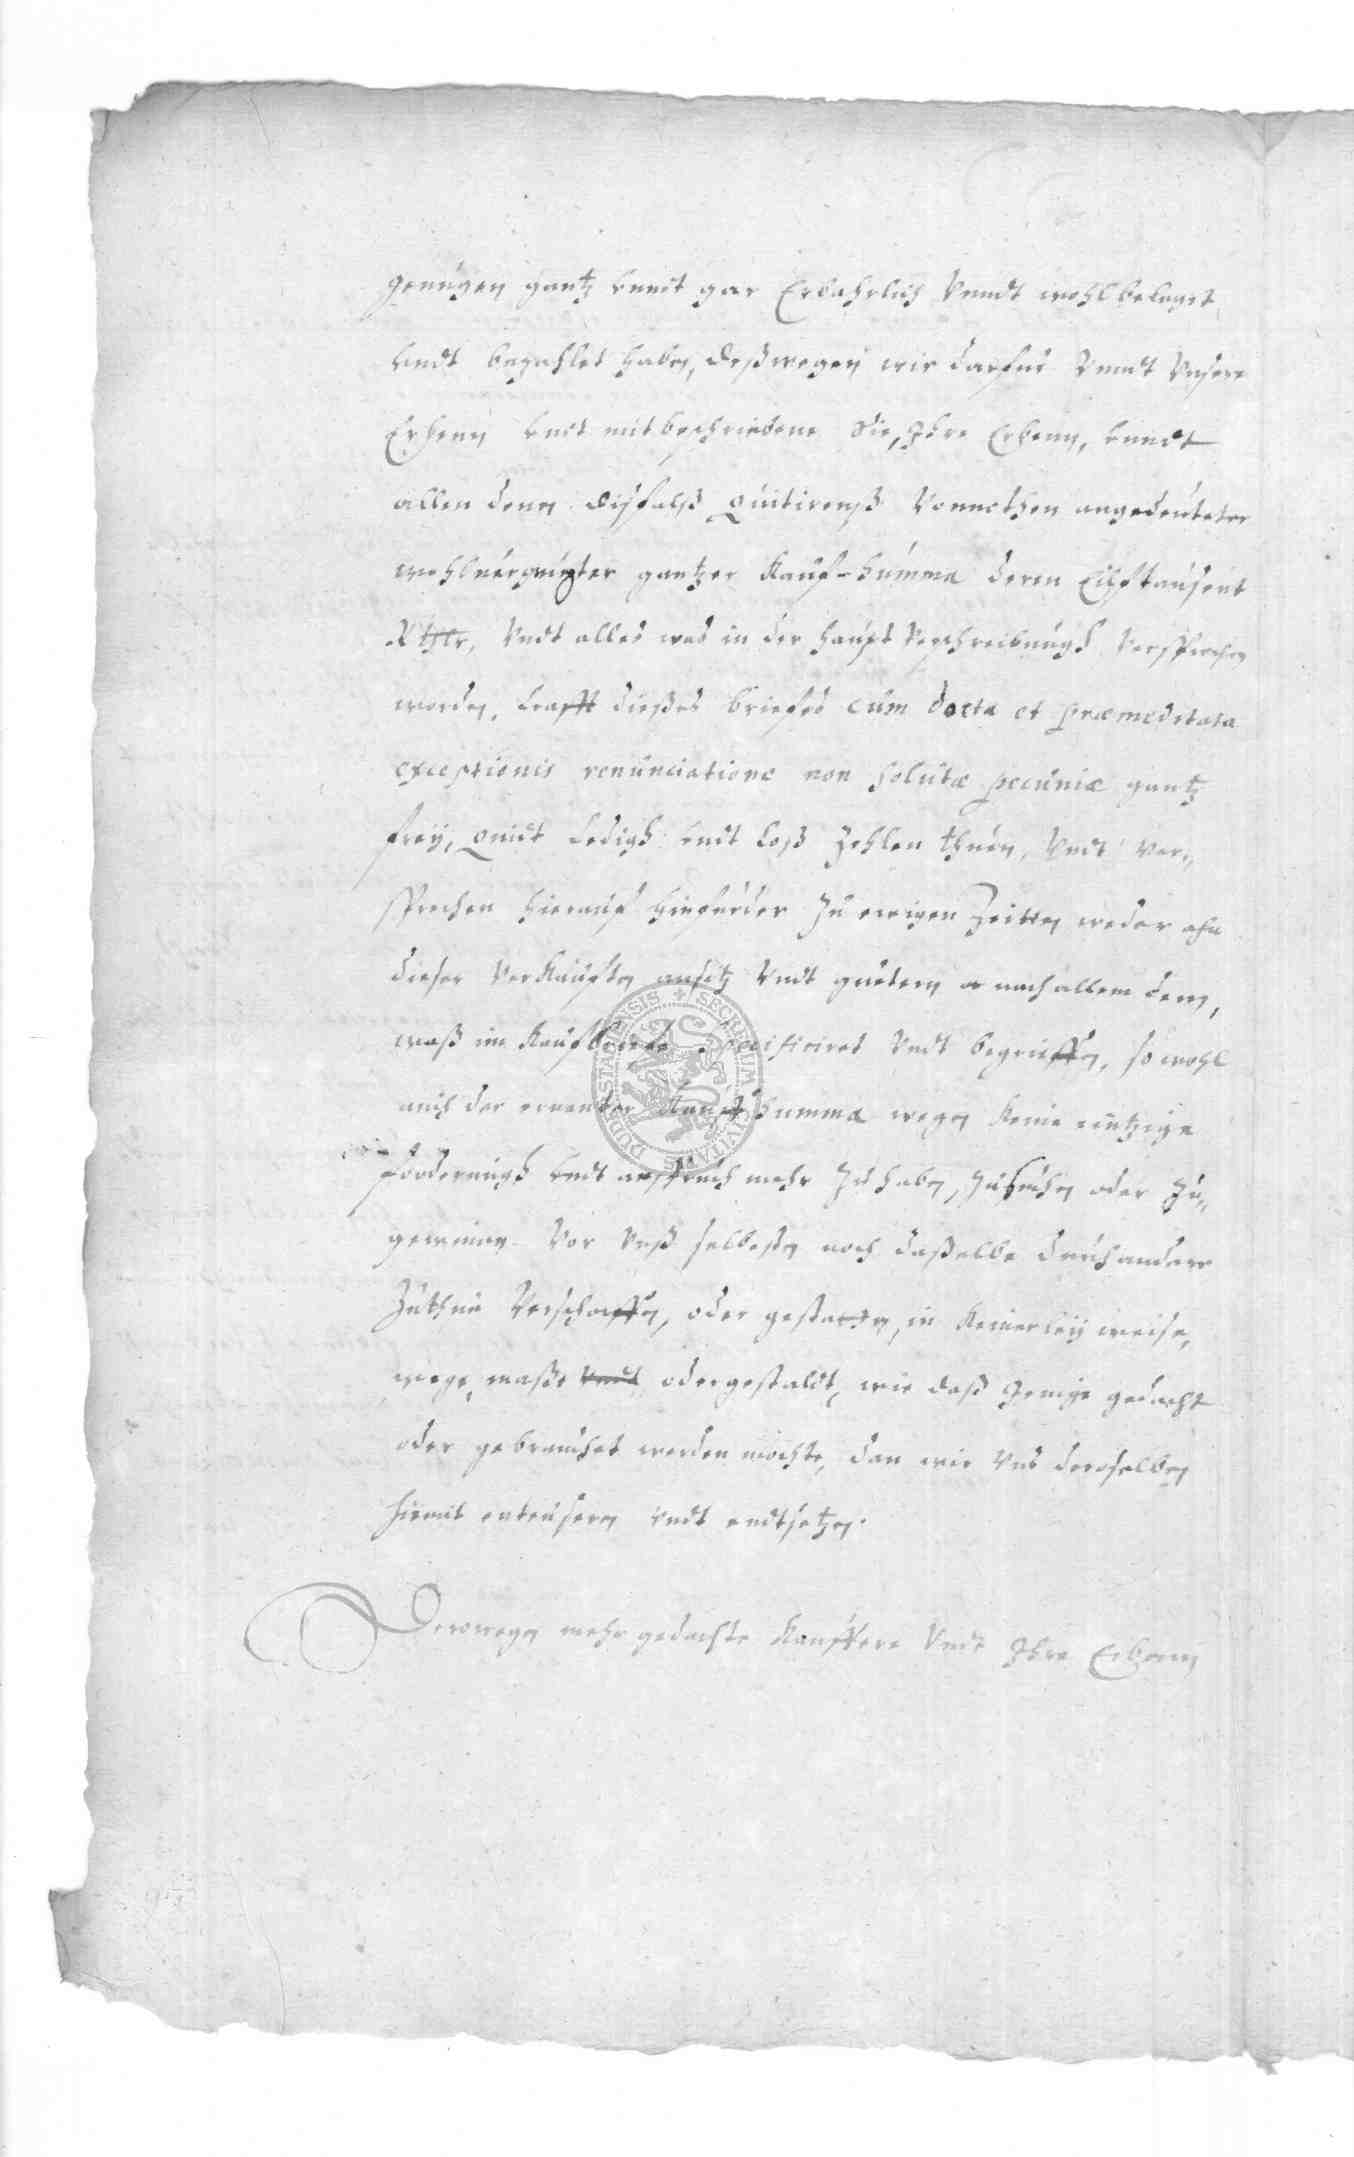 genügen gantz unndt gar Erbahrlich Unndt wohl belegt,
undt bezahlet haben, deßwegen wir darfür Unndt Unsere
Erbenn undt mitbeschriebene Sie, Ihre Erbenn, unndt
allen denen dißfalß quitirenß Vonnöthen angedeuteter
wohlvergnügter gantzer Kauf-Summa deren Eilftausent
Rthlr, Undt alles was in der Haupt Verschreibungh Versprochen
worden, krafft dießes briefes cum docta et præmeditata
exceptionis renunciatione non solutæ pecuniæ gantz
freÿ, quidt ledigh undt loß zehlen thuen, Undt Ver-
sprechen hierauf hinfürder zu ewigen Zeitten weder ahn
dieser Verkaufften ansitz Undt guetern noch allem dem,
waß im Kaufbriefe specificiret Undt begrieffen, so wohl
auch der ernanter Kauf Summa wegen keine eintzige
forderungh undt anspruch mehr zu haben, zu suchen oder zu-
gewinnen Vor Unß selbesten noch daßelbe durch andere
zuthun Verschaffen, oder gestatten, in keinerleÿ weise,
wege, maße undt oder gestaldt, wie daß Jenige gedacht
oder gebrauchet werden möchte, dan wir Uns deroselben
hiemit enteusern undt endtsetzen.
Derowegen mehr gedachte Kauffere Undt Ihre Erbenn
DUDERSTADIENSIS + SECRETUM CIVITATIS